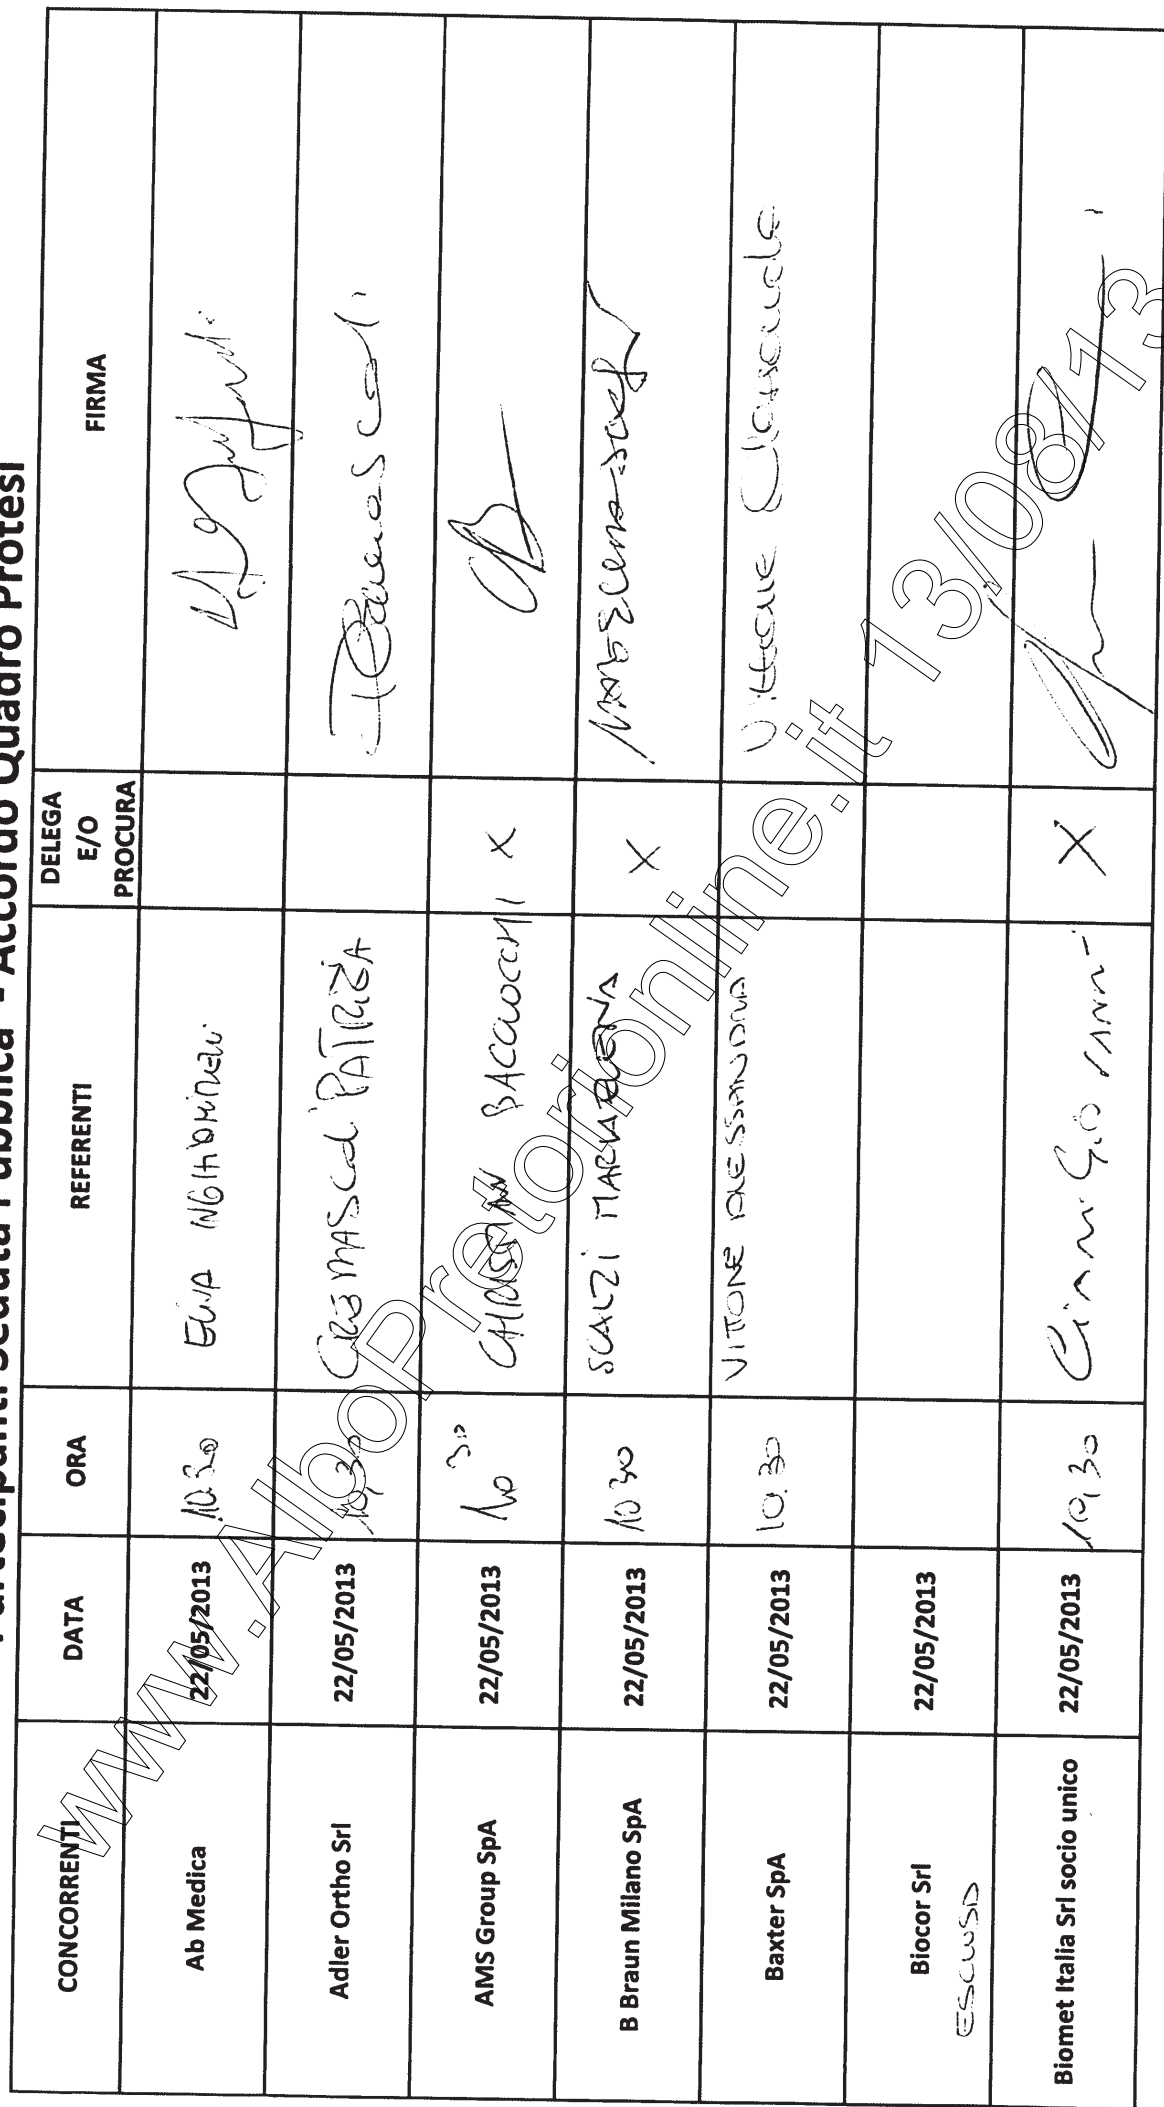 Partecipanti Seduta Pubblica - Accordo Quadro Protesi
CONCORRENTI DATA ORA REFERENTI DELEGA E/O PROCURA FIRMA
Ab Medica 22/05/2013 10.30
Adler Ortho Srl 22/05/2013 10,30 CREMASCOLI PATRIZIA
AMS Group SpA 22/05/2013 10 30 CHRISTIAN BACCIOCCHI X
B Braun Milano SpA 22/05/2013 10 30 SCALZI MARIA ELENA X
Baxter SpA 22/05/2013 10.30 VITTONE ALESSANDRA
Biocor Srl 22/05/2013
ESCLUSO
Biomet Italia Srl socio unico 22/05/2013 10,30 Gianni X
www.AlboPretorionline.it 13/08/13